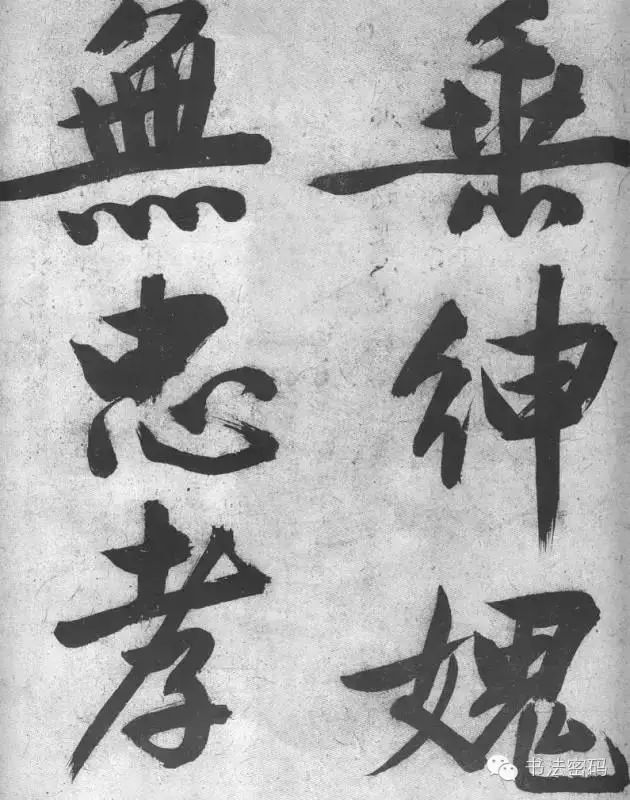 垂紳媿
無忠孝
书法密码